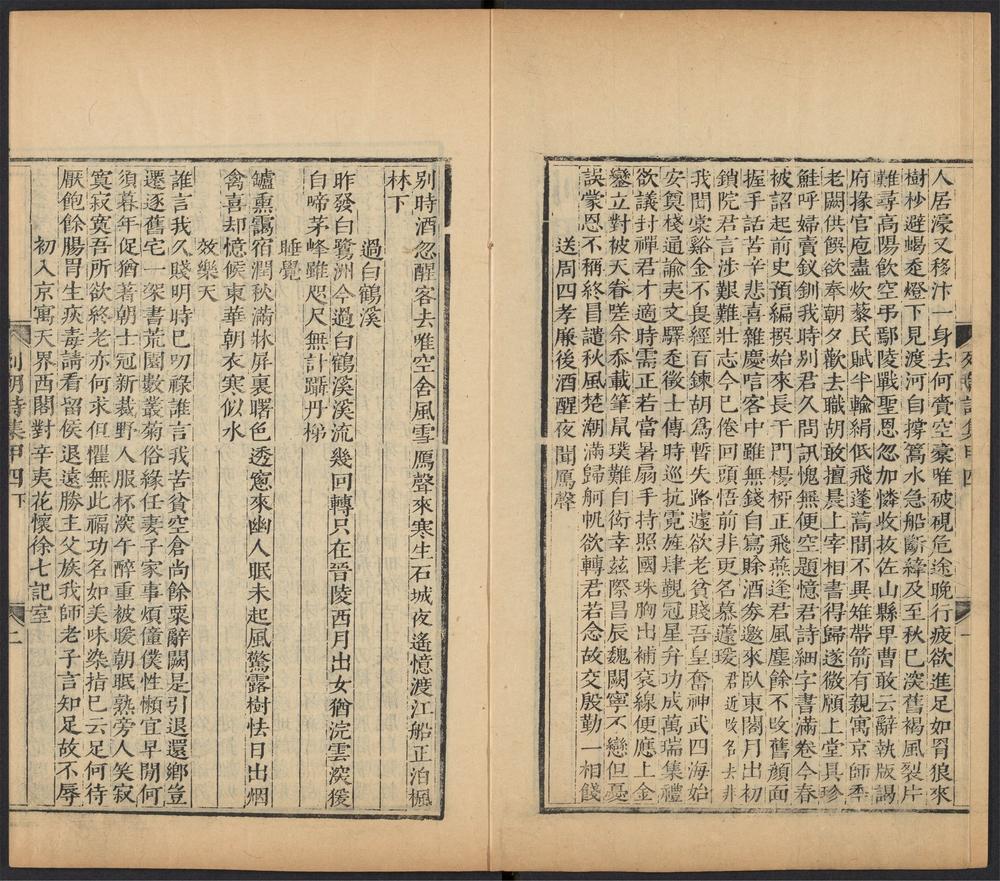 人居濠又移汴一身去何賷空橐唯破硯危途晚行疲欲進足如胃狼來
樹杪避蝎坐燈下見渡河自撐篙水急船斷縴及至秋已深舊褐風裂片
難尋高陽飲空弔鄢陵戰聖恩忽加憐收拔佐山縣甲曹敢云辭執版謁
府掾官庖盡炊藜民賦半輸絹低飛蓬蒿間不異雉帶箭有親寓京師季
老闕供饌欲奉朝夕歡去職胡敢擅晨上宰相書得歸遂微願上堂具珍
鮭呼婦賣釵釧我時别君久問訊愧無便空題憶君詩細字書滿卷今春
被詔起前史預編撰始來長干門場枒正飛燕逢君風塵餘不改舊顏面
握手話苦辛悲喜雜慶唁客中雖無錢自寫賒酒劵邀來臥東閣月出初
鎖院君言涉艱難壯志今已倦回頭悟前非更名慕蘧瑗君近改名去非
我聞棠谿金不畏經百鍊胡爲暫失路遽欲老貧賤吾皇奮神武四海始
安奠棧通諭夷文驛走徵士傳時巡抗霓旌肆覲冠星弁功成萬瑞集禮
欲議封禪君才適時需正若當暑扇手持照國珠胸出補衮線便應上金
鑾立對被天眷嗟余忝載筆鼠璞難自衒幸茲際昌辰魏闕寧不戀但憂
誤蒙恩不稱終昌譴秋風楚潮滿歸舸帆欲轉君若念故交殷勤一相餞
送周四孝廉後酒醒夜聞鴈聲
别時酒忽醒客去唯空舍風雪鴈聲來寒生石城夜遙憶渡江船正泊楓
林下
過白鶴溪
昨發白鷺洲今過白鶴溪溪流幾回轉只在晉陵西月出女猶浣雲深猨
白啼茅峰雖咫尺無計躡丹梯
睡覺
鑪熏靄宿潤秋滿牀屏裏曙色透窻來幽人眠未起風驚露樹怯日出烟
禽喜却憶候東華朝衣寒似水
效樂天
誰言我久賤明時已叨祿誰言我苦貧空倉尚餘粟辭闕是引退還鄉豈
遷逐舊宅一深書荒園數叢菊俗緣任妻子家事煩僮僕性懶宜早閒何
須暮年促猶著朝士冠新裁野人服杯深午醉重被暖朝眠熟旁人笑寂
寞寂寞吾所欲終老亦何求但懼無此福功名如美味染指已云足何待
厭飽餘腸胃生疾毒請看留侯退遠勝主父族我師老子言知足故不辱
初入京寓天界西閣對辛夷花懷徐七記室
列朝詩集甲四下
二